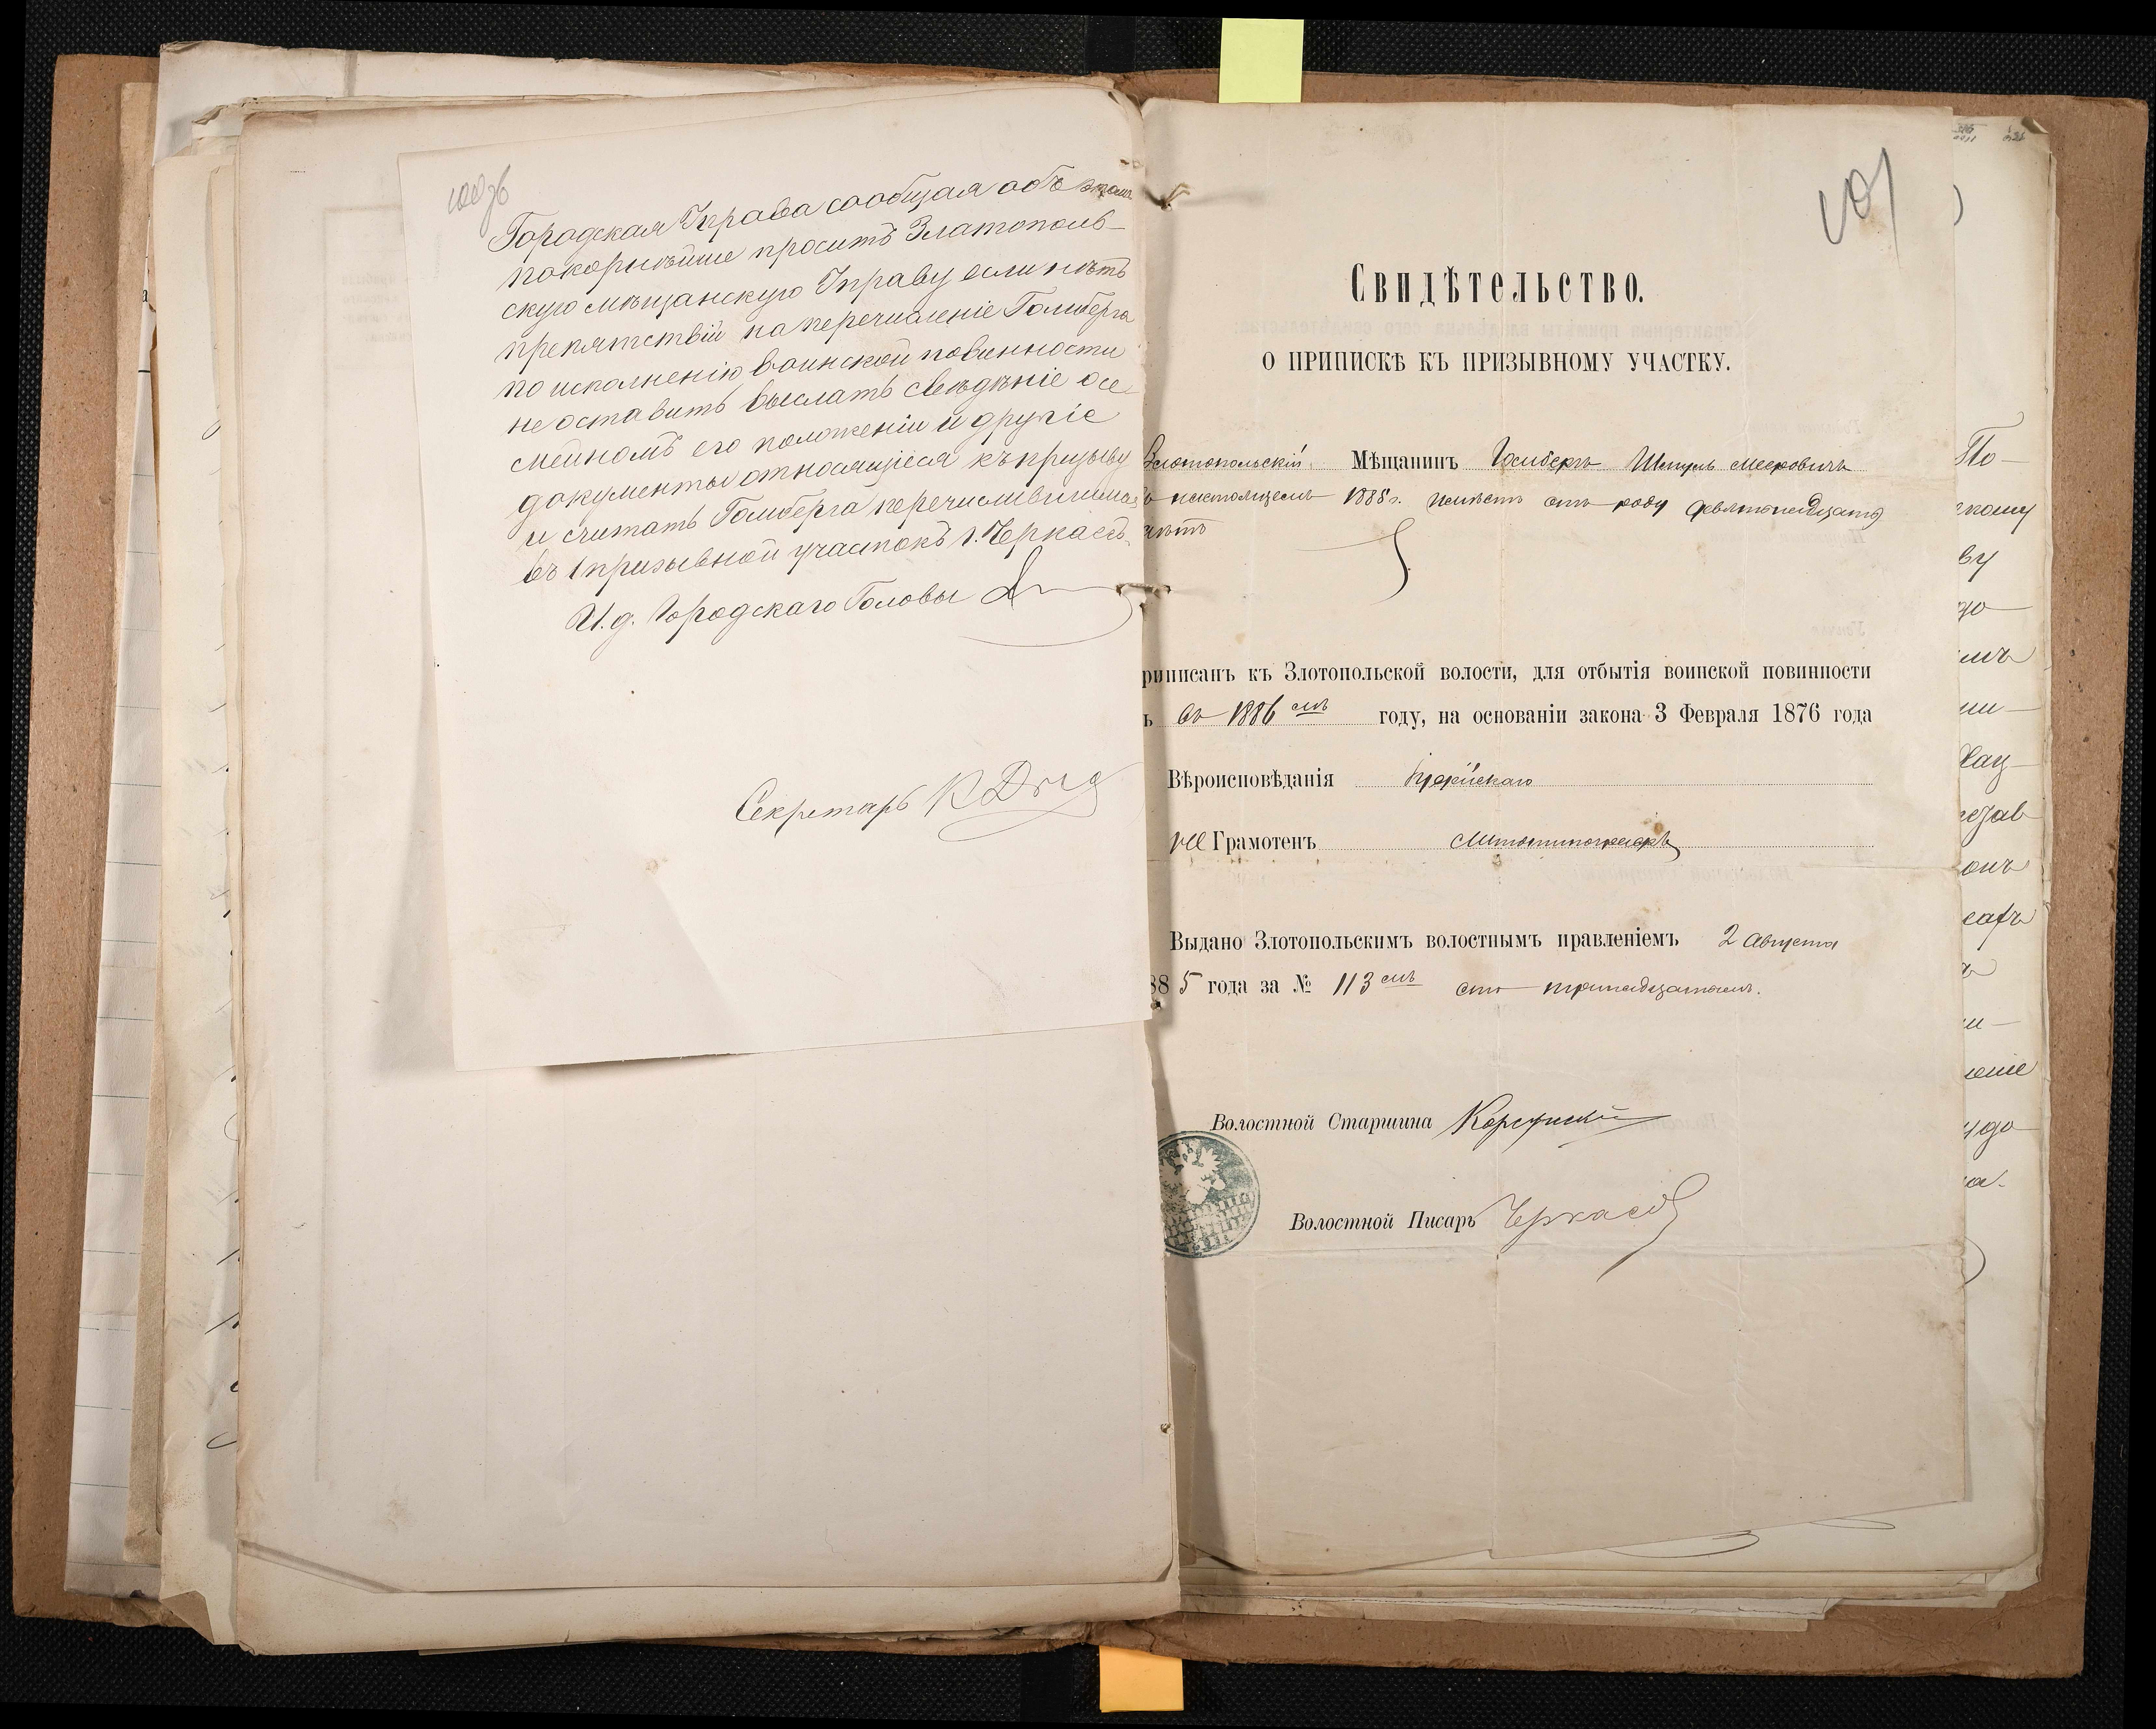 Городская Управа сообщая объ этомъ
покорнѣйше проситъ Златополь-
скую мѣщанскую Управу если нѣтъ
препятствій на перечисленіе Голиберга
по исполненію воинской повинности
не оставить выслать свѣдѣніе о се-
мейномъ его положеніи и другіе
документы относящіеся къ призыву
и считать Голиберга перечислившимся
въ 1 призывной участокъ г. Черкассъ.
И. д. Городскаго Головы
Секретарь
101
Свидѣтельство.
О ПРИПИСКѢ КЪ ПРИЗЫВНОМУ УЧАСТКУ.
Злотопольскій Мѣщанинъ Шмуль Мееровичъ
настоящемъ 1885 г. имѣетъ отъ роду девятнадцать
лѣтъ
риписанъ къ Злотопольской волости, для отбытія воинской повинности
ъ въ 1886 мъ году, на основаніи закона 3 Февраля 1876 года
Вѣроисповѣданія Іудейскаго
не Грамотенъ
Выдано Злотопольскимъ волостнымъ правленіемъ 2 Августа
885 года за № 113 мъ сто тринадцатымъ.
Волостной Старшина
Волостной Писарь Черкасов